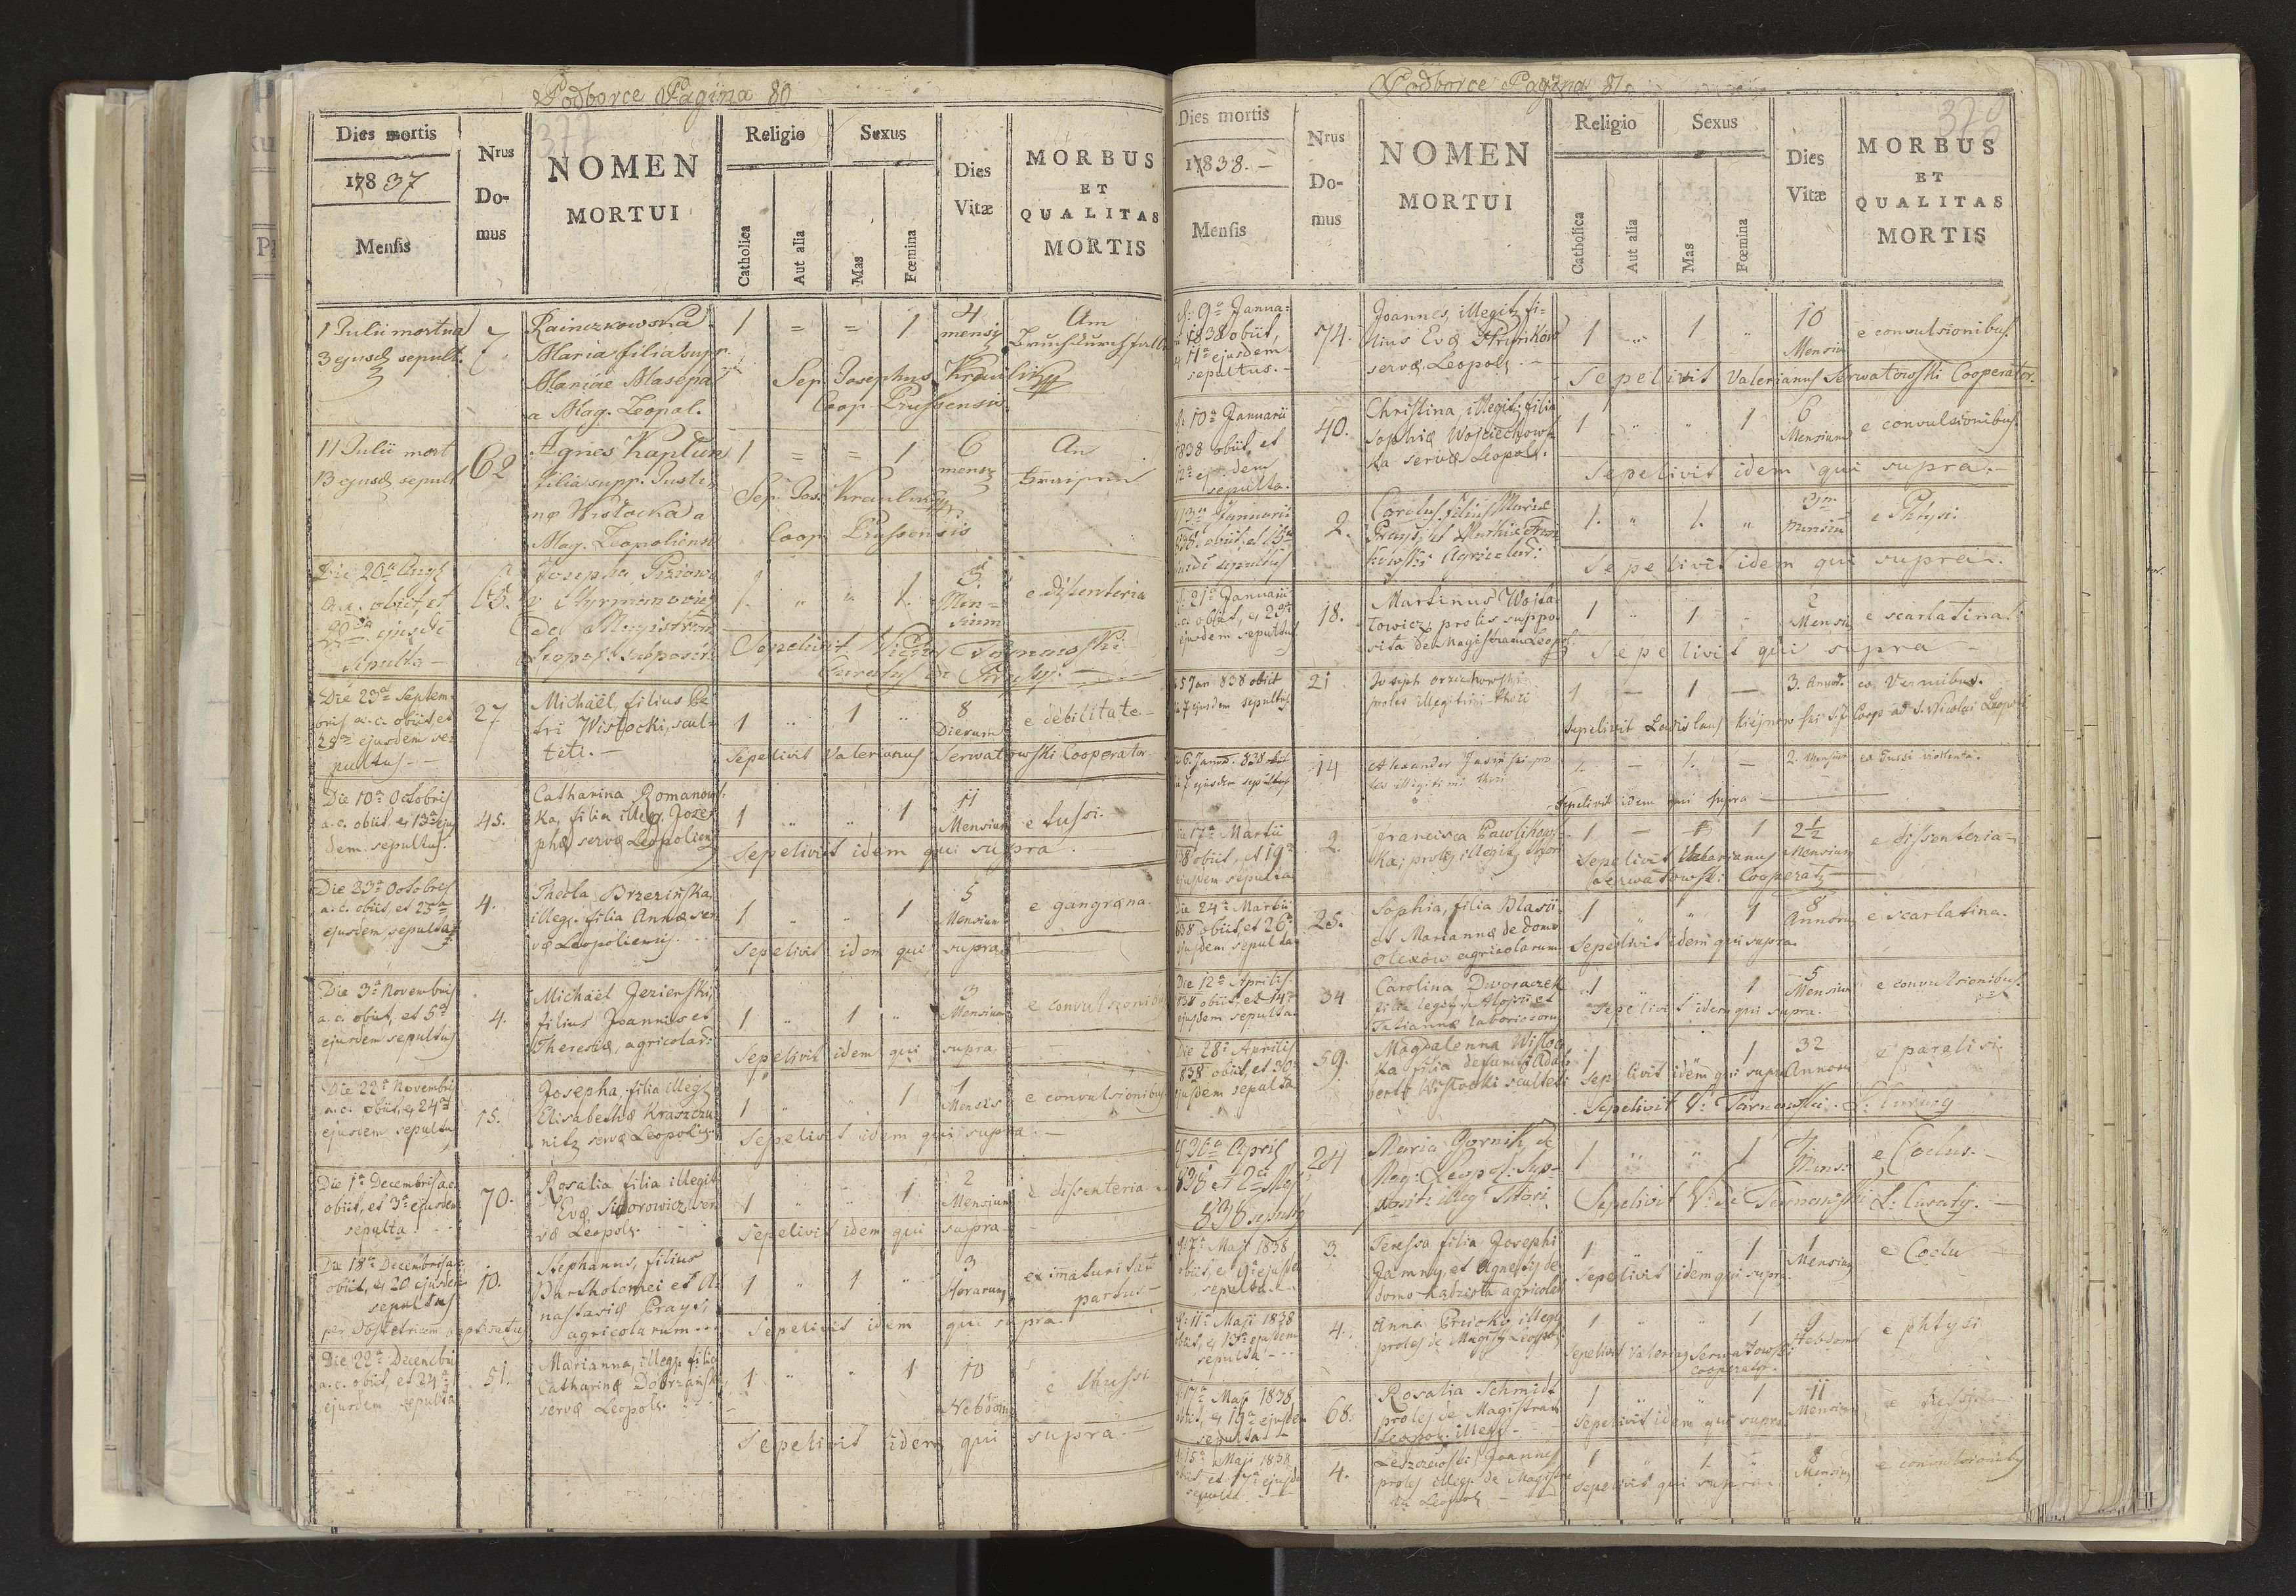 Podborce Pagina 80
377
Dies mortis
1837
Mensis
Nrus Domus
NOMEN
MORTUI
Religio
Catholica
Aut alia
Sexus
Mas
Fœmina
Dies
Vitæ
MORBUS
ET
QUALITAS
MORTIS
1 Julii mortua
3 ejusd sepult.
7
Maria filia supp.
a Mag. Leopol.
1 = = 1
4
mensis
Sep. Josephus
Coop. Prussensis
11 Julii mort
13 ejusd sepult
62
Agnes Kaptun
filia supp. Justi
næ Wistocka a
Mag. Leopoliensi
1 = = 1
6
mens
Sep. Jos.
Coop. Prussensis
Die 20a Aug
a.c. obiit, et
ejusd
sepulta
Josepha
1. " " 1.
3.
Men=
sium
e disenteria
Sepelivit
Die 23a Septem
bris a.c. obiit et
25a ejusdem se=
pultus
27
Michaël, filius Pe
tri Wistocki, scul=
teti.
1 " 1 "
8
Dierum
e debilitate
Sepelivit Valerianus Serwatowski Cooperator
Die 10a Octobris
a.c. obiit, et 13a ejus
dem sepultus.
45.
Catharina Romanows
ka, filia illeg. Jose
phæ servæ Leopolien
1 " " 1
11
Mensium
e tussi.
Sepelivit idem qui supra.
Die 23a Octobris
a.c. obiit, et 25a
ejusdem, sepulta
4.
Thecla Brzezińska,
illeg. filia Annæ ser
væ Leopoliensis.
1 " " 1
5
Mensium
e gangræna.
Sepelivit idem qui supra.
Die 3a Novembris
a.c. obiit, et 5a
ejusdem sepultus
4.
Michaël Jezierski,
filius Joannis et
Theresiæ, agricolar:
1 " 1 "
3
Mensium
e convulsionibus
Sepelivit idem qui supra.
Die 22a Novembris
a.c. obiit, et 24a
ejusdem sepulta
15.
Josepha, filia illeg
Elisabethæ Kraszczu
nitz servæ Leopolis.
1 " " 1
1
Mensis
e convulsionibus
Sepelivit idem qui supra.
Die 1a Decembris a.c.
obiit, et 3a ejusdem
sepulta
70.
Rosalia filia illegit
Evæ Sidorowicz ser
væ Leopols.
1 " " 1
2
Mensium
e dissenteria
Sepelivit idem qui supra
Die 18a Decembris a.c.
obiit, et 20 ejusdem
sepultus
per Obstetricem baptisatus
10.
Stephanus, filius
Bartholomei et A
nastasiæ Prays,
agricolarum
1 " 1 "
3
Horarum
ex imaturitat
partus
Sepelivit idem qui supra.
Die 22a Decembris
a.c. obiit, et 24a
ejusdem sepulta
51.
Marianna, illeg. filia
Catharinæ Dobrzańska,
servæ Leopols.
1 " " 1
10
Hebdom
e tussi
Sepelivit idem qui supra.
Podborce Pagina 81
Dies mortis
1838.
Mensis
Nrus Domus
NOMEN
MORTUI
Religio
Catholica
Aut alia
Sexus
Mas
Fœmina
Dies
Vitæ
MORBUS
ET
QUALITAS
MORTIS
9a Janua=
1838 obiit,
11a ejusdem
sepultus.
74.
Joannes, illegit. fi=
lius Evæ
servæ Leopols
1 " 1 "
10
Mensium
e convulsionibus.
Sepelivit Valerianus Serwatowski Cooperator.
10a Januarii
1838 obiit, et
12a ejusdem
sepulta.
40.
Christina, illegit. filia
Sophiæ Wojciechows
ka servæ Leopols.
1 " " 1
6
Mensium
e convulsionibus
Sepelivit idem qui supra.
13a Januarii
838. obiit, et 15a
2.
Carolus, filius
1. " 1. "
3
Mensium
e Phtysi
Sepelivit idem qui supra.
21a Januarii
a.c. obiit, et
ejusdem sepultus
18.
Martinus Wojta
towicz, proles suppo
sita de Magistratu Leopol.
1 " 1 "
2
Mensium
e scarlatina.
Sepelivit qui supra
5 Jan 838 obiit
7 ejusdem sepultus
21
Joseph Orzechowski
proles illegitimi thori
1 — 1 —
3. Annor.
ex Vermibus.
Sepelivit Ladislaus
Coop ad S. Nicolai Leopoli
6. Januar. 838 obiit
7 ejusdem sepultus
14
Alexander Jasiński pro
les illegitimi thori
1. — 1. —
2. Mensium
ex Tussi violenta.
Sepelivit idem qui supra
17a Martii
838 obiit, et 19a
ejusdem sepulta
2.
Francisca Pawlikows
ka, proles illegit. thori
1 — 1
2 1/2
Mensium
e dissenteria
Sepelivit Valerianus
Serwatowski Cooperat.
Die 24a Martii
838 obiit, et 26a
ejusdem sepulta
25.
Sophia, filia Blasii
et Mariannæ de domo
Olexów agricolarum
1 " " 1
8
Annorum
e scarlatina.
Sepelivit idem qui supra.
Die 12a Aprilis
838 obiit, et 14a
ejusdem sepulta
34
Carolina Dworaczek
filia legit. Aloysii et
Tatiannæ laboriosorum
1 " " 1
5
Mensium
e convulsionibus.
Sepelivit idem qui supra.
Die 28a Aprilis
838 obiit, et 30a
ejusdem sepulta
59.
Magdalenna Wistoc
ka filia defuncti Adal
berti Wistocki sculteti
1 " " 1
32
Annorum
e paralisi.
Sepelivit idem qui supra
Sepelivit V: Tarnawski L: Curatus
30a April
838 et 2a Maj
838 sepulta
24
Maria Gornik de
Mag: Leopol: Sup=
posit: illeg: thori
1 " " 1
4
Mens:
Sepelivit V: de Tarnawski L: Curatus.
7a Maji 1838
obiit, et 9a ejusde
sepulta
3.
Teressa filia Josephi
Jamny, et Agnetis de
domo Kadzista agricolar
1 " " 1
1
Mensium
Sepelivit idem qui supra.
11a Maji 1838
obiit, et 13a ejusdem
sepulta
4.
Anna Pruska illeg.
proles de Magist. Leopol.
1 " " 1
Hebdomad
e phtysi
Sepelivit Valerianus Serwatowski
Cooperator.
17a Maji 1838
obiit, et 19a ejusdem
sepulta
68.
Rosalia Schmidt
proles de Magistratu
Leopol. illeg.
1 " " 1
11
Mensium
e tussi
Sepelivit idem qui supra
15a Maji 1838
obiit et 17a ejusde
4.
Joannes
proles illeg. de Magistra
tu Leopol
1 " 1 "
8
Mensium
e convulsionibus
Sepelivit qui supra.